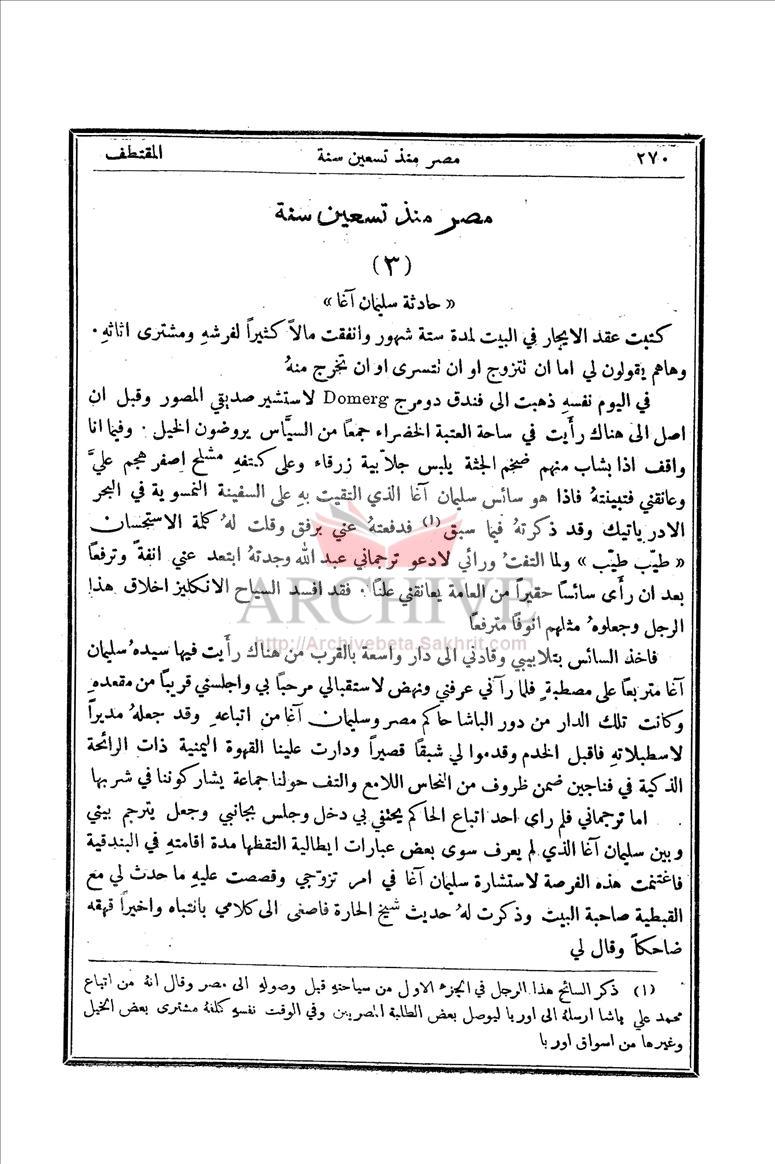 ٢٧٠ مصر منذ تسعين سنة المقتطف
مصر منذ تسعين سنة
(٣)
« حادثة سليمان آغا »
كتبت عقد الايجار في البيت لمدة ستة شهور وانفقت مالاً كثيراً لفرشهِ ومشترى اثاثهِ .
وهاهم يقولون لي اما ان تتزوج او ان تتسرى او ان تخرج منهُ
في اليوم نفسهِ ذهبت الى فندق دومرج Domerg لاستشير صديقي المصور وقبل ان
اصل الى هناك رأَيت في ساحة العتبة الخضراء جمعاً من السيَّاس يروضون الخيل . وفيما انا
واقف اذا بشاب منهم ضخم الجثة يلبس جلابية زرقاء وعلى كتفهِ مشلح اصفر هجم عليَّ
وعانقني فتبينتهُ فاذا هو سائس سليمان آغا الذي التقيت بهِ على السفينة النمسوية في البحر
الادرياتيك وقد ذكرتهُ فيما سبق (١) فدفعتهُ عني برفق وقلت لهُ كلمة الاستحسان
« طيّب طيّب » ولما التفتُ ورائي لادعو ترجماني عبد الله وجدتهُ ابتعد عني انفةً وترفعاً
بعد ان رأَى سائساً حقيراً من العامة يعانقني علناً . فقد افسد السياح الانكليز اخلاق هذا
الرجل وجعلوهُ مثلهم انوفاً مترفعاً
ARCHIVE
http://Archivebeta.Sakhrit.com
فاخذ السائس بتلابيبي وقادني الى دار واسعة بالقرب من هناك رأَيت فيها سيدهُ سليمان
آغا متربعاً على مصطبةٍ فلما رآني عرفني ونهض لاستقبالي مرحباً بي واجلسني قريباً من مقعدهِ
وكانت تلك الدار من دور الباشا حاكم مصر وسليمان آغا من اتباعهِ وقد جعلهُ مديراً
لاسطبلاتهِ فاقبل الخدم وقدموا لي شبقاً قصيراً ودارت علينا القهوة اليمنية ذات الرائحة
الذكية في فناجين ضمن ظروف من النحاس اللامع والتف حولنا جماعة يشاركوننا في شربها
اما ترجماني فلم راى احد اتباع الحاكم يحتفي بي دخل وجلس بجانبي وجعل يترجم بيني
وبين سليمان آغا الذي لم يعرف سوى بعض عبارات ايطالية التقظها مدة اقامتهِ في البندقية
فاغتنمت هذه الفرصة لاستشارة سليمان آغا في امر تزوّجي وقصصت عليهِ ما حدث لي مع
القبطية صاحبة البيت وذكرت لهُ حديث شيخ الحارة فاصغى الى كلامي بانتباه واخيراً قهقه
ضاحكاً وقال لي
(١) ذكر السائح هذا الرجل في الجزء الاول من سياحتهِ قبل وصولهِ الى مصر وقال انهُ من اتباع
محمد علي باشا ارسلهُ الى اوربا ليوصل بعض الطلبة المصريين وفي الوقت نفسهِ كلفهُ مشترى بعض الخيل
وغيرها من اسواق اوربا